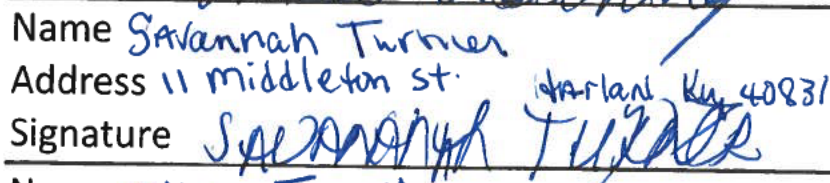 Name Savannah Turner
Address 11 middleton st. Harlan, Ky 40831
Signature SAVANNAH TURNER